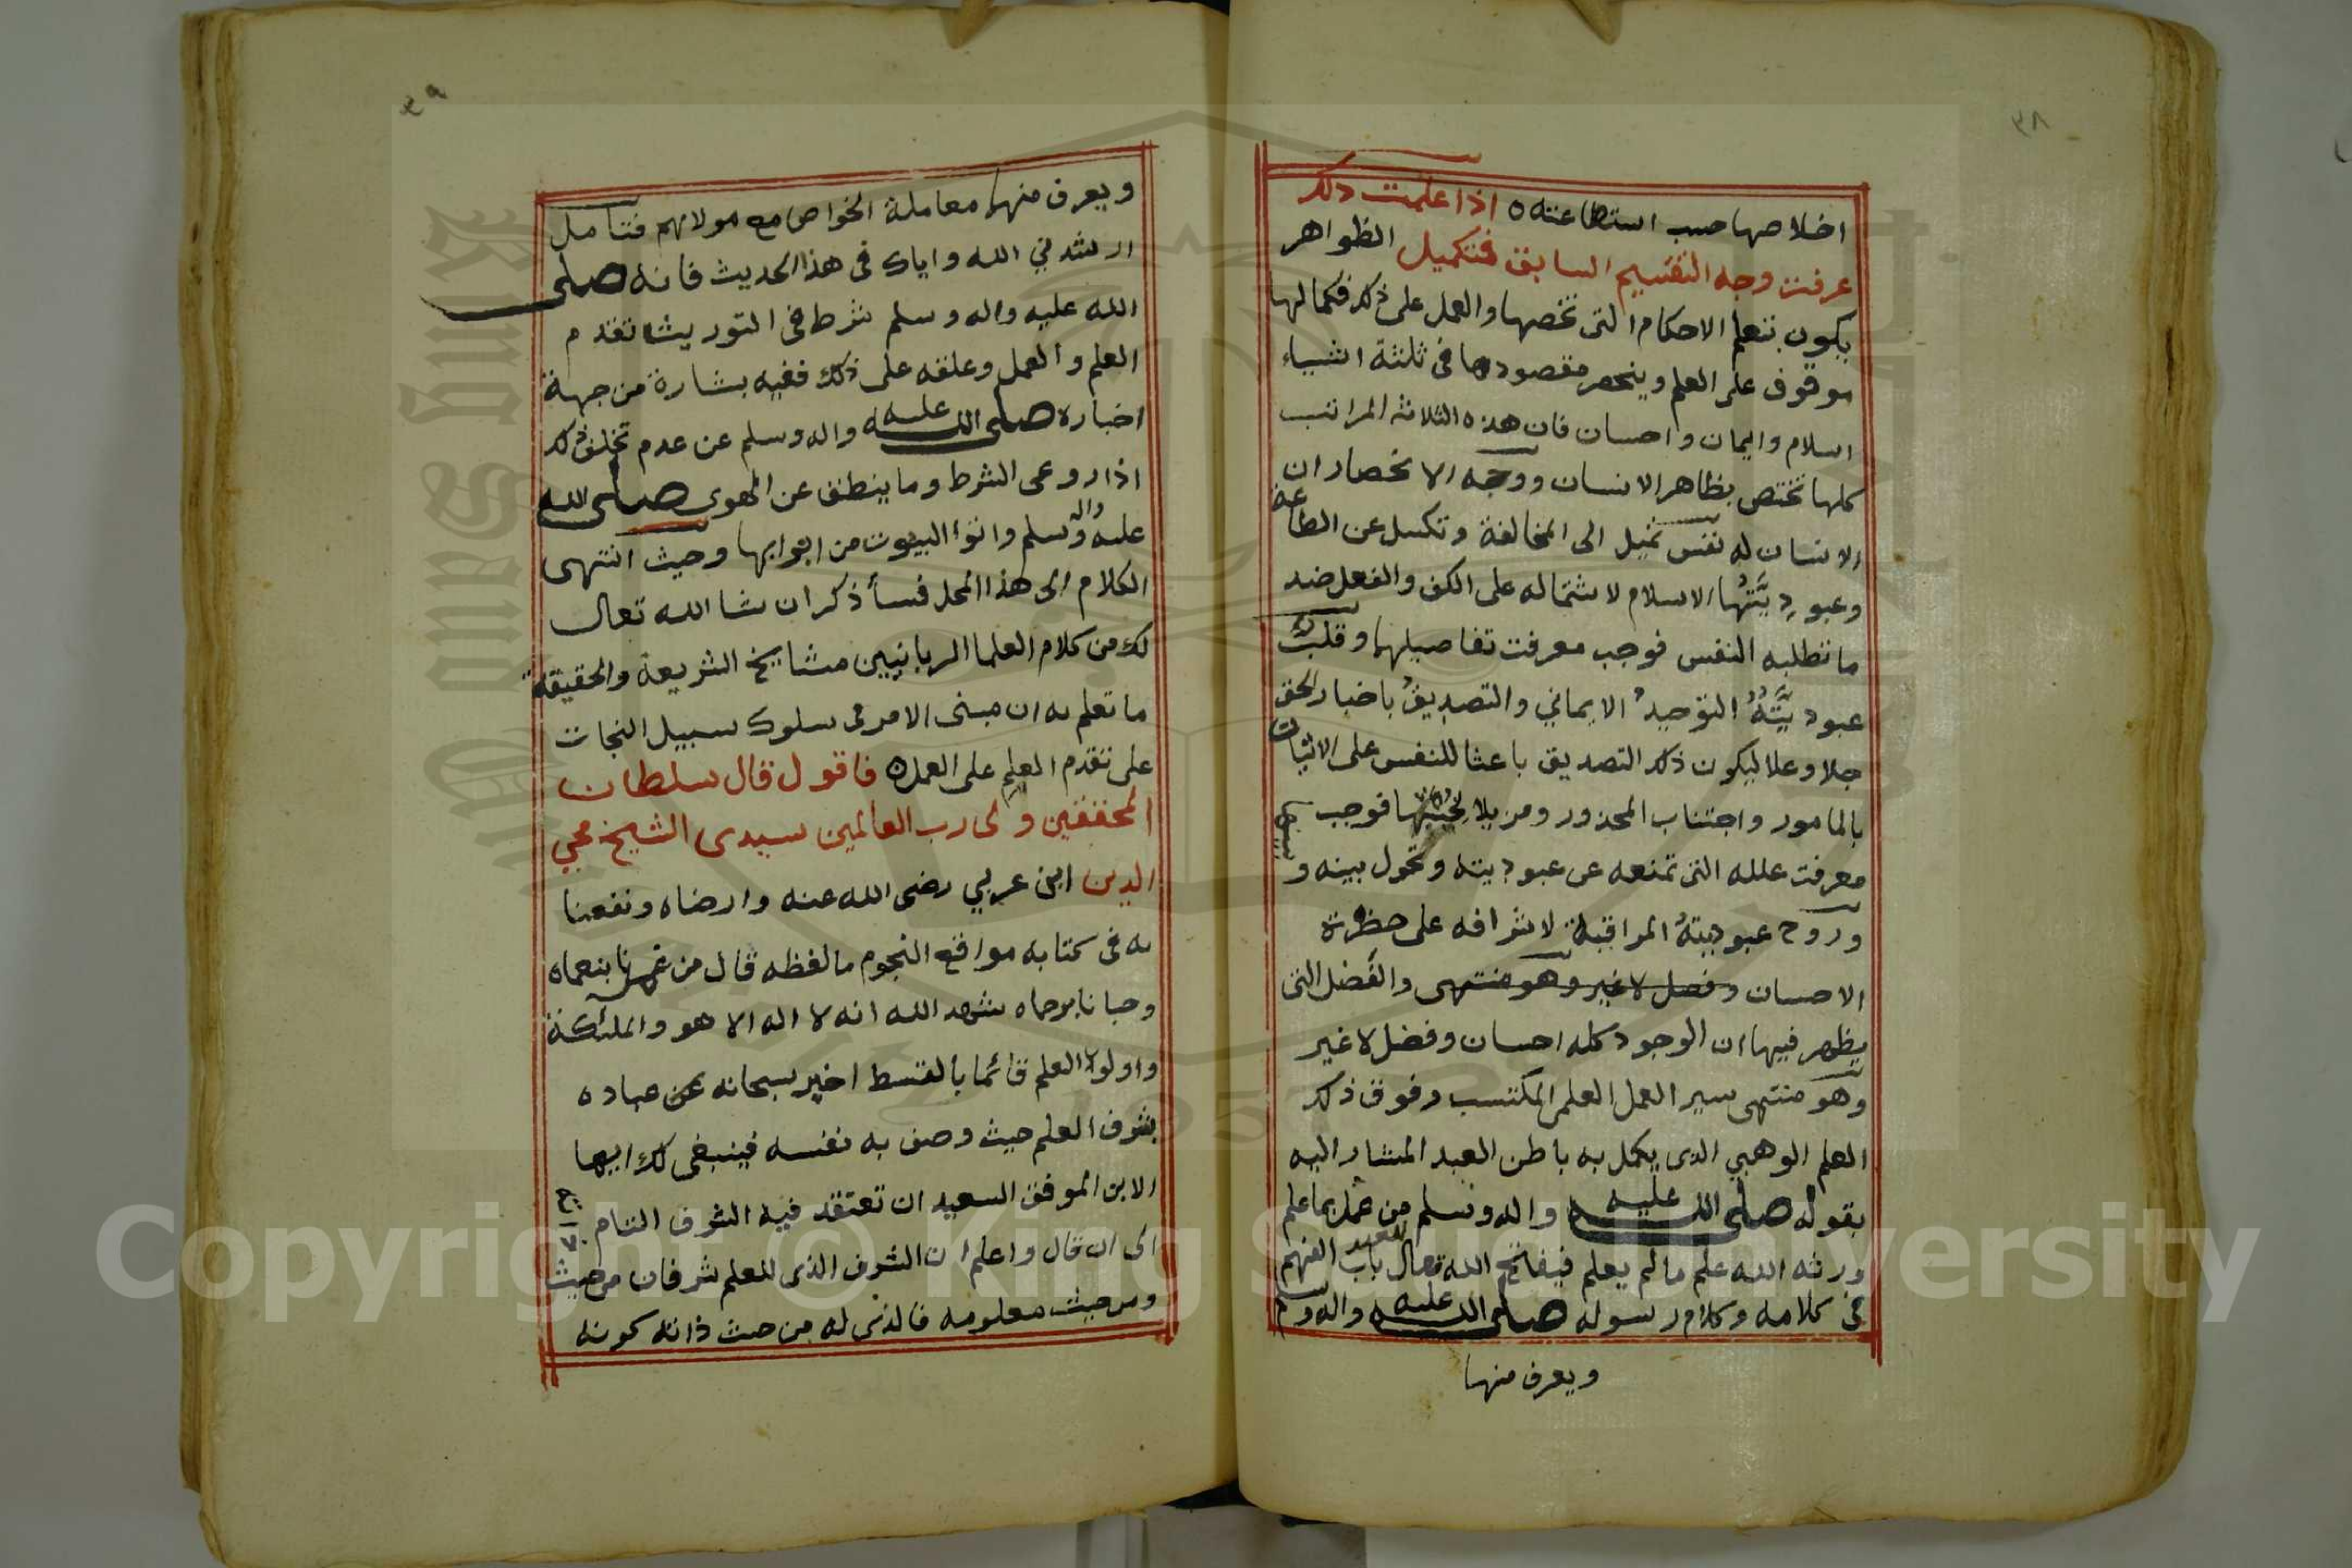 ٣٨
اخلاصها حسب استطاعته ه اذا علمت ذلك
عرفت وجه التقسيم السابق فتكميل الظواهر
يكون بتعلم الاحكام التى تخصها والعمل على ذلك فكمالها
موقوف على العلم وينحصر مقصودها فى ثلثة اشياء
اسلام وايمان واحسان فان هذه الثلاثة المراتب
كلها تختص بظاهر الانسان ووجه الانحصار ان
الانسان له نفس تميل الى المخالفة وتكسل عن الطاعة
وعبودِيَّتُها الاسلام لاشتماله على الكف والفعل ضد
ما تطلبه النفس فوجب معرفت تفاصيلها وقلب
عبوديَّتُهُ التوحيدُ الايماني والتصديقُ باخبار الحق
جلا وعلا ليكون ذلك التصديق باعثا للنفس على الاتيان
بالمامور واجتناب المحذور ومزيلا فوجب
معرفت علله التى تمنعه عن عبوديته وتحول بينه و
وروح عبوديتهُ المراقبة لاشرافه على حظرة
الاحسان وفصل لاغير وهو منتهى والفضل التى
يظهر فيها ان الوجود كله احسان وفضل لاغير
وهو منتهى سير العمل العلمى المكتسب وفوق ذلك
العلم الوهبي الذى يكمل به باطن العبد المشار اليه
بقوله صلى الله عليه واله وسلم من عمل بما علم
ورثه الله علم مالم يعلم فيفاتح الله تعال للعبد باب الفهم
فى كلامه وكلام رسوله صلى الله عليه واله وسلم
ويعرف منها
٣٩
ويعرف منها معاملة الخواص مع مولاهم فتامل
ارشدني الله واياك فى هذا الحديث فانه صلى
الله عليه واله وسلم شرط فى التوريث تقدم
العلم والعمل وعلقه على ذلك ففيه بشارة من جهة
اخباره صلى الله عليه واله وسلم عن عدم تخلف ذلك
اذا روعى الشرط وما ينطق عن الهوى صلى الله
عليه واله وسلم واتوا البيوت من ابوابها وحيث انتهى
الكلام الى هذا المحل فسأذكر ان شا الله تعال
لك من كلام العلما الربانيين مشايخ الشريعة والحقيقة
ما تعلم به ان مبنى الامر فى سلوك سبيل النجات
على تقدم العلم على العمل ه فاقول قال سلطان
المحققين وولى رب العالمين سيدى الشيخ محيي
الدين ابن عربي رضى الله عنه وارضاه ونفعنا
به فى كتابه مواقع النجوم ما لفظه قال من غمرنا بنعماه
وحبانا برحماه شهد الله انه لا اله الا هو والملئكة
واولوا العلم قائما بالقسط اخبر سبحانه عن عباده
بشرف العلم حيث وصف به نفسه فينبغى لك ايها
الابن الموفق السعيد ان تعتقد فيه الشرف التام
الى ان قال واعلم ان الشرف الذى للعلم شرفان من حيث
ومن حيث معلومه فالذى له من حيث ذاته كونه
Copyright © King Saud University